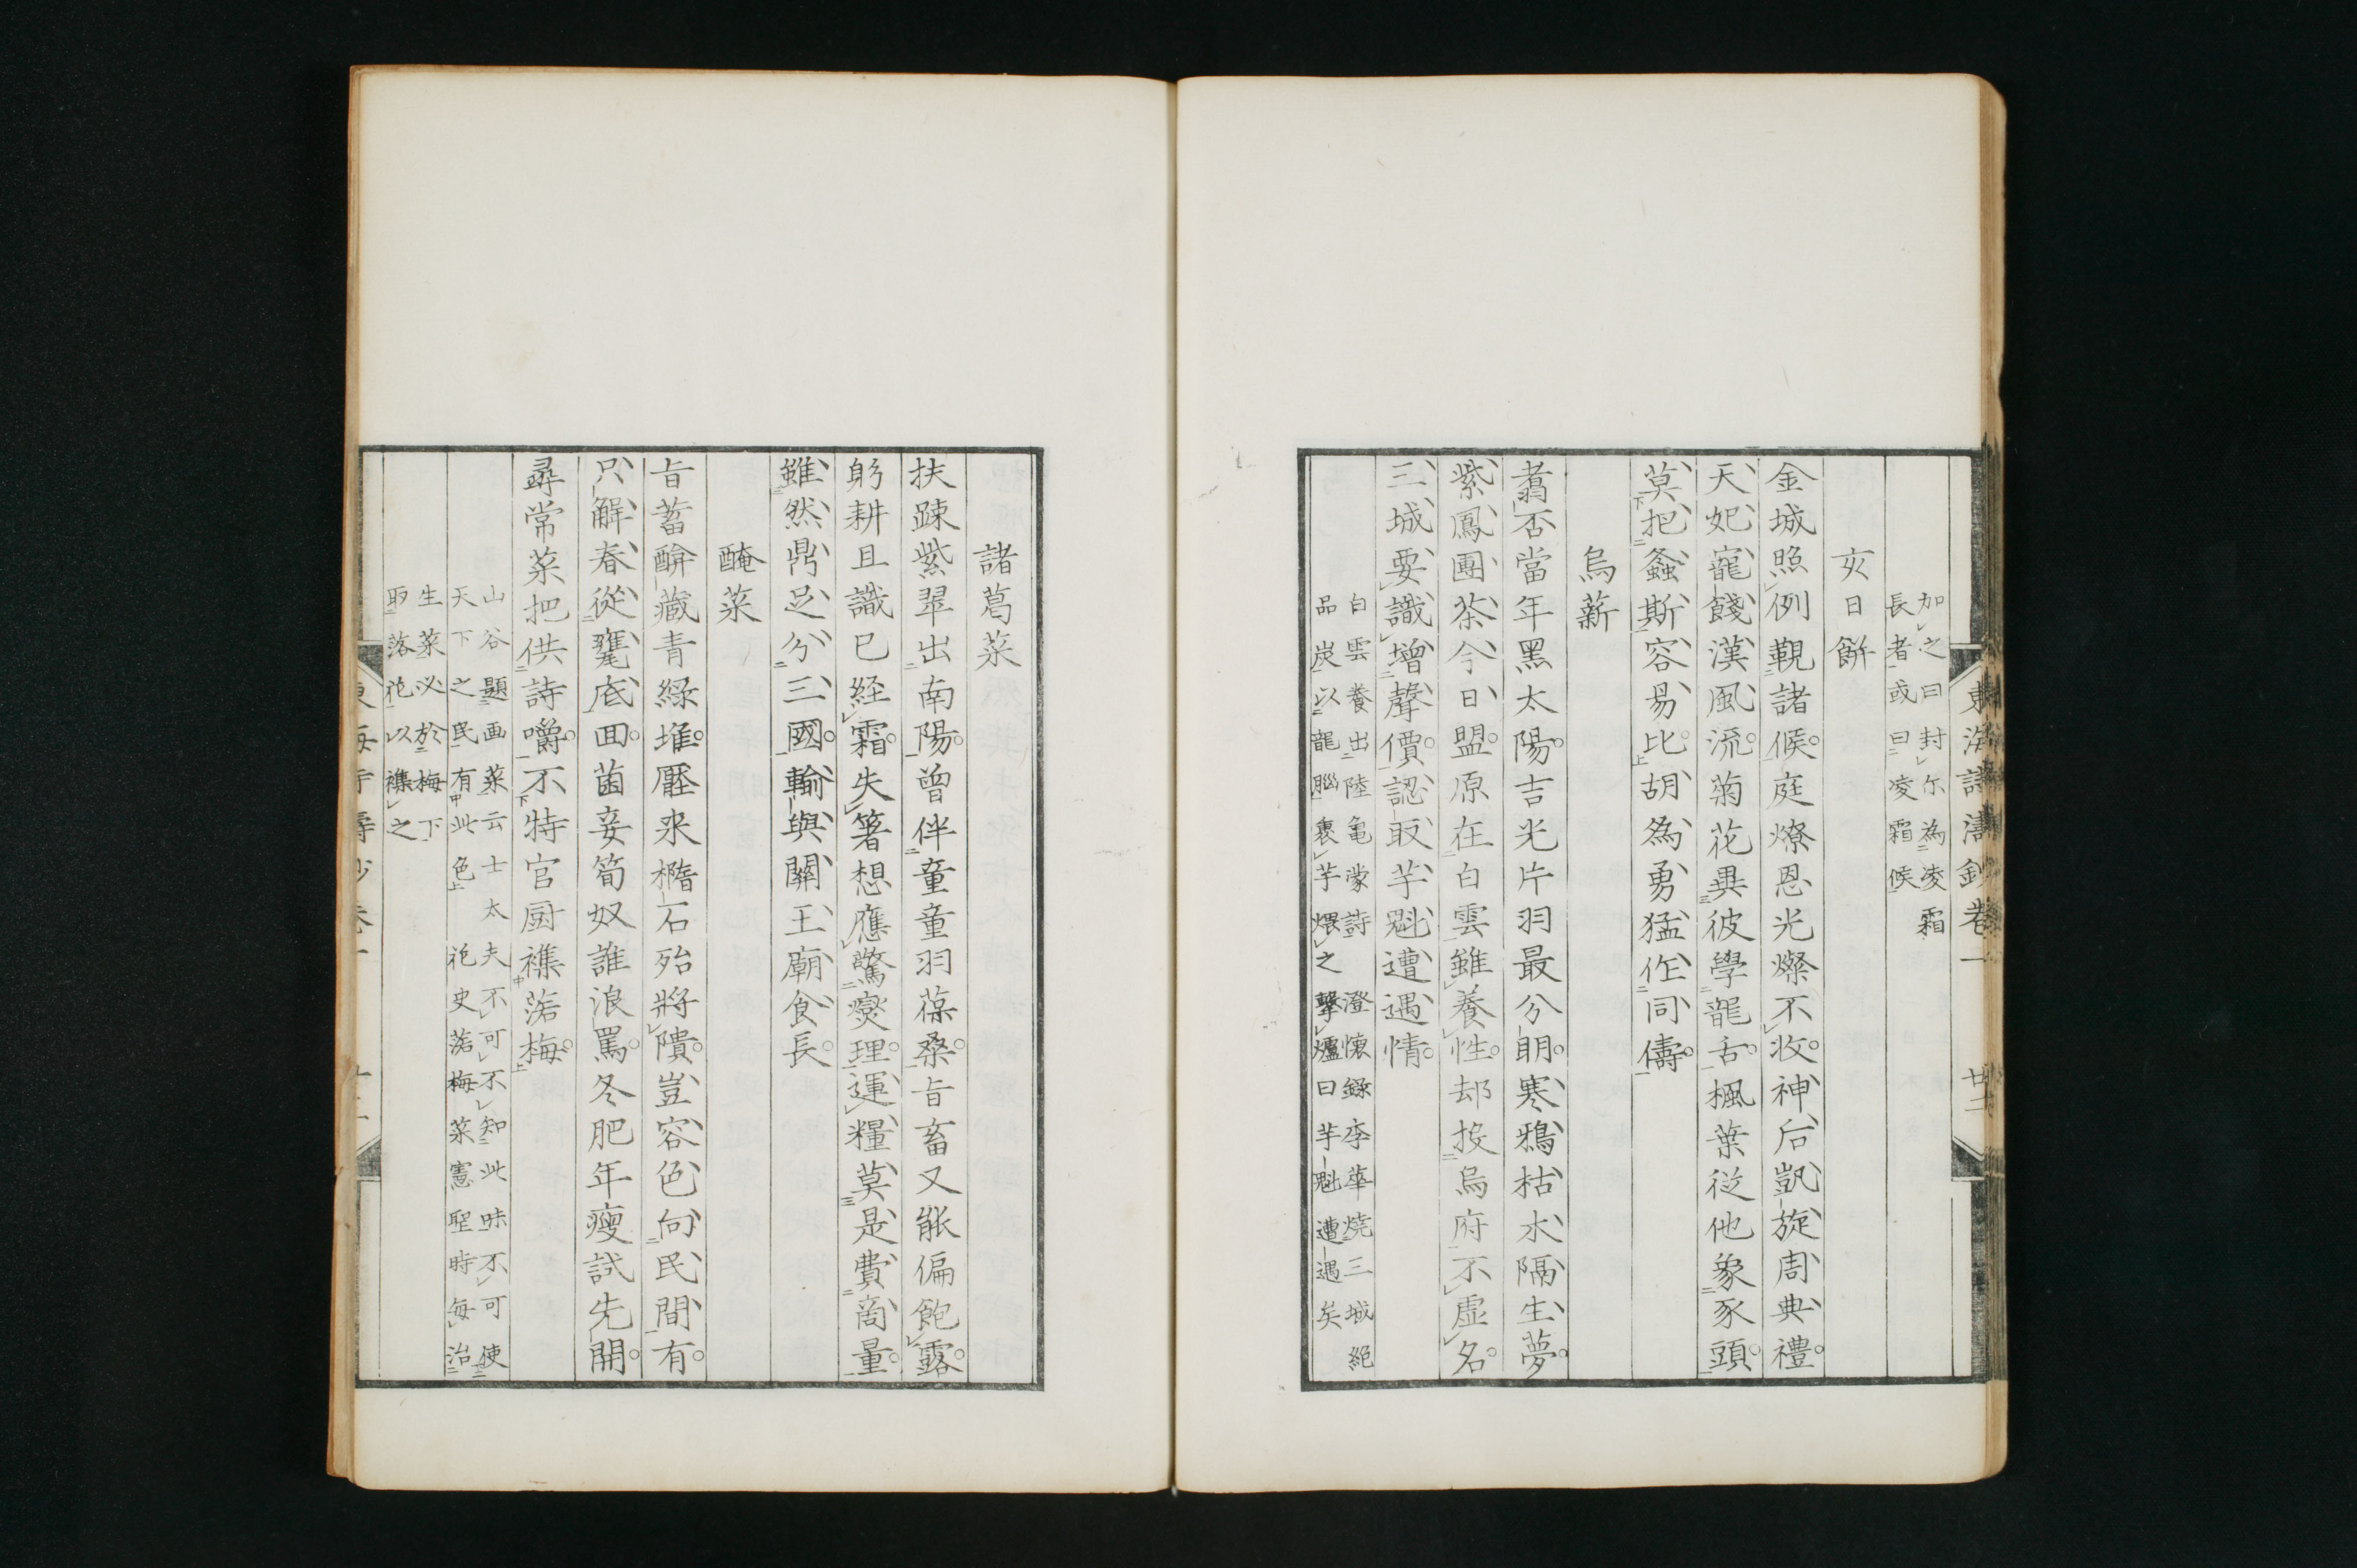 東海詩濤鈔卷一 廿二
加之曰封尓為凌霜
長者或曰凌霜候
亥日餅
金城照例覲諸候庭燎恩光燦不收神后凱旋周典禮
天妃寵餞漢風流菊花異彼學龍舌楓葉従他象豕頭
莫把螽斯容易比胡為勇猛作同儔
烏薪
翥否當年黑太陽吉光片羽最分明寒鴉枯水隔生夢
紫鳳團茶今日盟原在白雲雖養性却按烏府不虚名
三城要識増聲價認取芋魁遭遇情
白雲養出陸亀蒙詩 澄懐録李華燒三城絕
品炭以龍腦裹芋煨之 擊爐曰芋魁遭遇矣
諸葛菜
扶踈紫翠出南陽曽伴童童羽葆桑旨畜又能偏飽露
躬耕且識已経霜失箸想應驚燮理運糧莫是費啇量
雖然鼎足分三國輸與關王廟食長
醃菜
旨蓄醡藏青緑堆壓来橢石殆將隤豈容色向民間有
只解春從甕底回菌妾筍奴誰浪罵冬肥年瘦試先開
尋常菜把供詩嚼不特官厨襍落梅
山谷題画菜云士太夫不可不知此味不可使
天下之民有此色 花史落梅菜憲聖時每治
生菜必於梅下
取落花以襍之